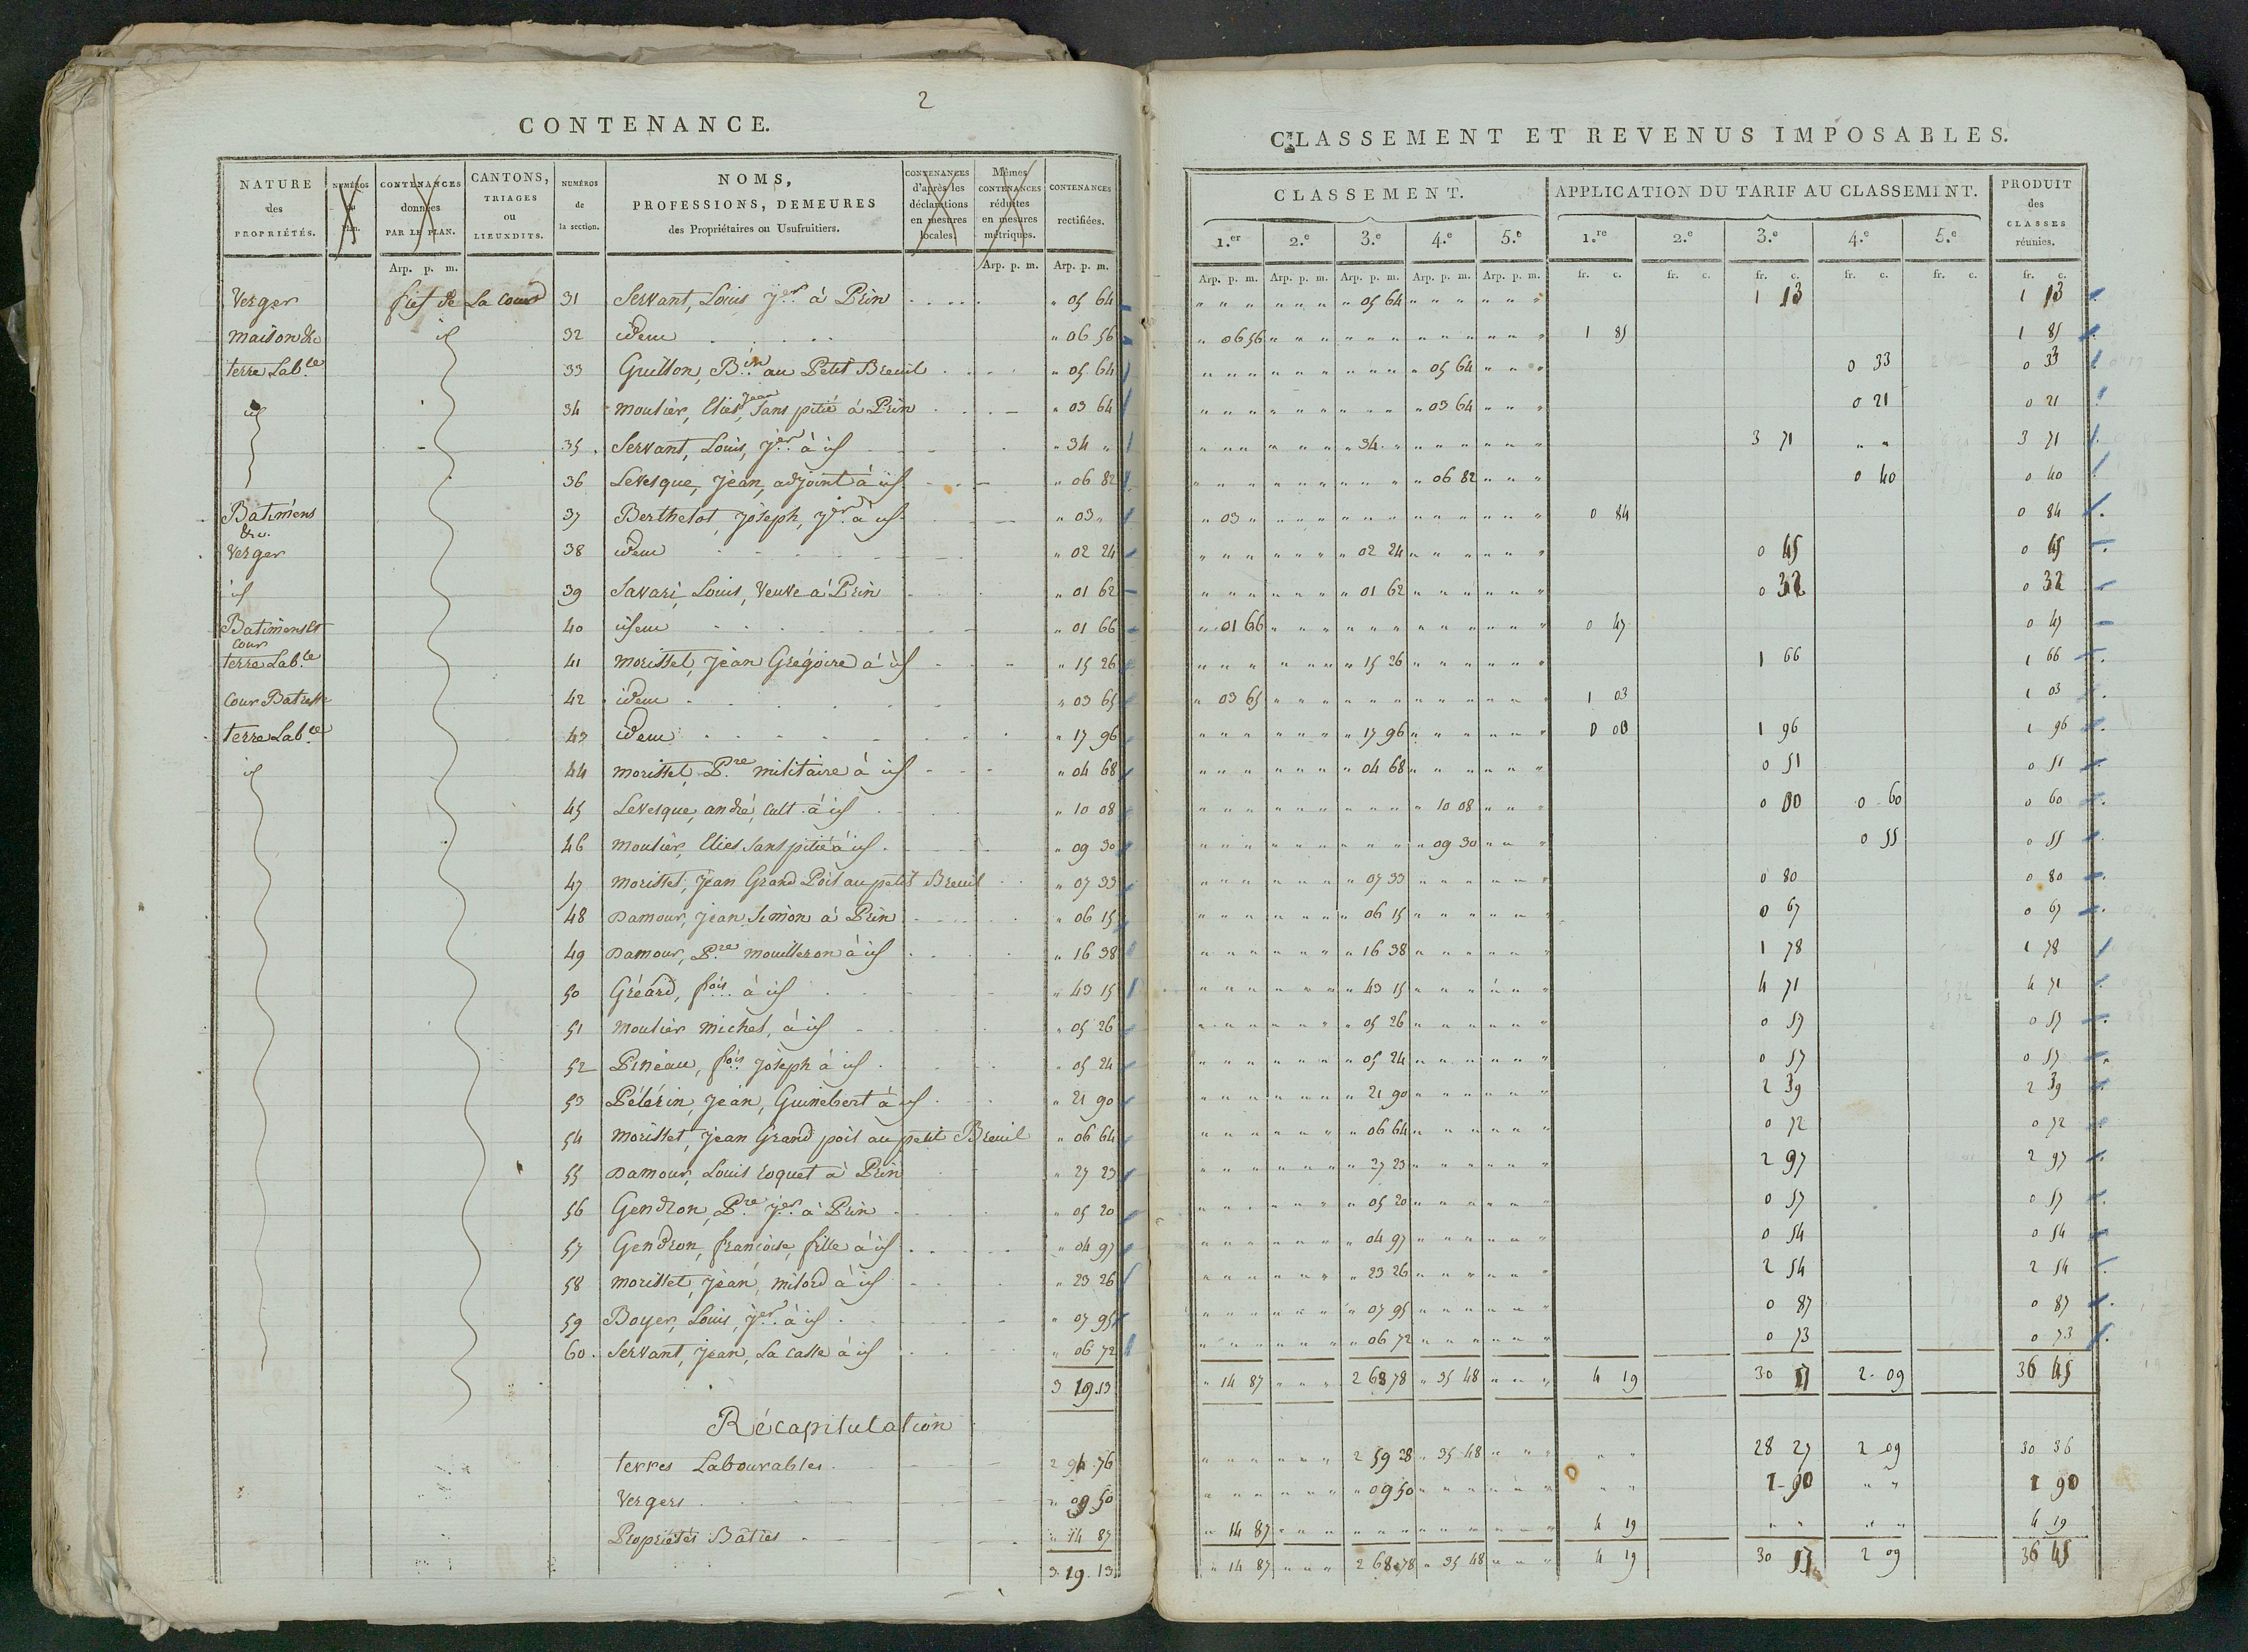 2
CONTENANCE.
NATURE des PROPRIÉTÉS. NUMÉROS du Plan. CONTENANCES données PAR LE PLAN. CANTONS, TRIAGES ou LIEUXDITS. NUMÉROS de la section. NOMS, PROFESSIONS, DEMEURES des Propriétaires ou Usufruitiers. CONTENANCES d'après les déclarations en mesures locales. Mêmes CONTENANCES réduites en mesures métriques. CONTENANCES rectifiées.
Arp. p. m. Arp. p. m. Arp. p. m.
Verger fief de La Cour 31 Servant, Louis, jer à Prin " 05 64
maison &c id 32 idem " 06 56
terre Lab.le 33 Guitton, B.in au Petit Breuil " 05 64
id 34 moulier, Elies, Jean Sans pitié à Prin " 03 64
35 Servant, Louis, jer à id " 34 "
36 Levesque, jean, adjoint à id " 06 82
Batimens &c. 37 Berthelot, joseph, jer à id " 03 "
Verger 38 idem " 02 24
id 39 Savari, Louis, Veuve à Prin " 01 62
Batimens et cour 40 idem " 01 66
terre Lab.le 41 morisset, jean Grégoire à id " 15 26
Cour Batisse 42 idem " 03 65
terre Lab.le 43 idem " 17 96
id 44 morisset P.re militaire à id " 04 68
45 Levesque, andré, cult. à id " 10 08
46 moulier, Elies Sans pitié à id " 09 30
47 morisset, jean Grand Pois au petit Breuil " 07 33
48 Damour, jean Simon à Prin " 06 15
49 Damour, P.re mouilleron à id " 16 38
50 Gréard, f.ois à id " 43 15
51 moulier michel, à id " 05 26
52 Pineau, f.ois joseph à id " 05 24
53 Pélérin, jean, Guinebert à id " 21 90
54 morisset, jean Grand pois au petit Breuil " 06 64
55 Damour, Louis coquet à Prin " 27 23
56 Gendron, P.re jer à Prin " 05 20
57 Gendron, francoise, fille à id " 04 97
58 morisset, jean, milord à id " 23 26
59 Boyer, Louis, jer à id " 07 95
60 Servant, jean, La casse à id " 06 72
3 19 13
Récapitulation
terres Labourables 2 94 76
Vergers " 09 50
Propriétés Bâties " 14 87
3 19 13
CLASSEMENT ET REVENUS IMPOSABLES.
CLASSEMENT. APPLICATION DU TARIF AU CLASSEMENT. PRODUIT des CLASSES réunies.
1.er 2.e 3.e 4.e 5.e 1.re 2.e 3.e 4.e 5.e
Arp. p. m. Arp. p. m. Arp. p. m. Arp. p. m. Arp. p. m. fr. c. fr. c. fr. c. fr. c. fr. c. fr. c.
" 05 64 1 13 1 13
" 06 56 1 85 1 85
" 05 64 0 33 0 33
" 03 64 0 21 0 21
" 34 " 3 71 " " 3 71
" 06 82 0 40 0 40
" 03 " 0 84 0 84
" 02 24 0 45 0 45
" 01 62 0 32 0 32
" 01 66 0 47 0 47
" 15 26 1 66 1 66
" 03 65 1 03 1 03
" 17 96 0 00 1 96 1 96
" 04 68 0 51 0 51
" 10 08 0 00 0 60 0 60
" 09 30 0 55 0 55
" 07 33 0 80 0 80
" 06 15 0 67 0 67
" 16 38 1 78 1 78
" 43 15 4 71 4 71
" 05 26 0 57 0 57
" 05 24 0 57 0 57
" 21 90 2 39 2 39
" 06 64 0 72 0 72
" 27 23 2 97 2 97
" 05 20 0 57 0 57
" 04 97 0 54 0 54
" 23 26 2 54 2 54
" 07 95 0 87 0 87
" 06 72 0 73 0 73
" 14 87 " " " 2 68 78 " 35 48 " " " 4 19 30 17 2 09 36 45
2 59 28 " 35 48 " " " " " 28 27 2 09 30 36
" 09 50 " " 1 90 " " 1 90
" 14 87 4 19 " " " " 4 19
" 14 87 " " " 2 68 78 " 35 48 " " " 4 19 30 17 2 09 36 45